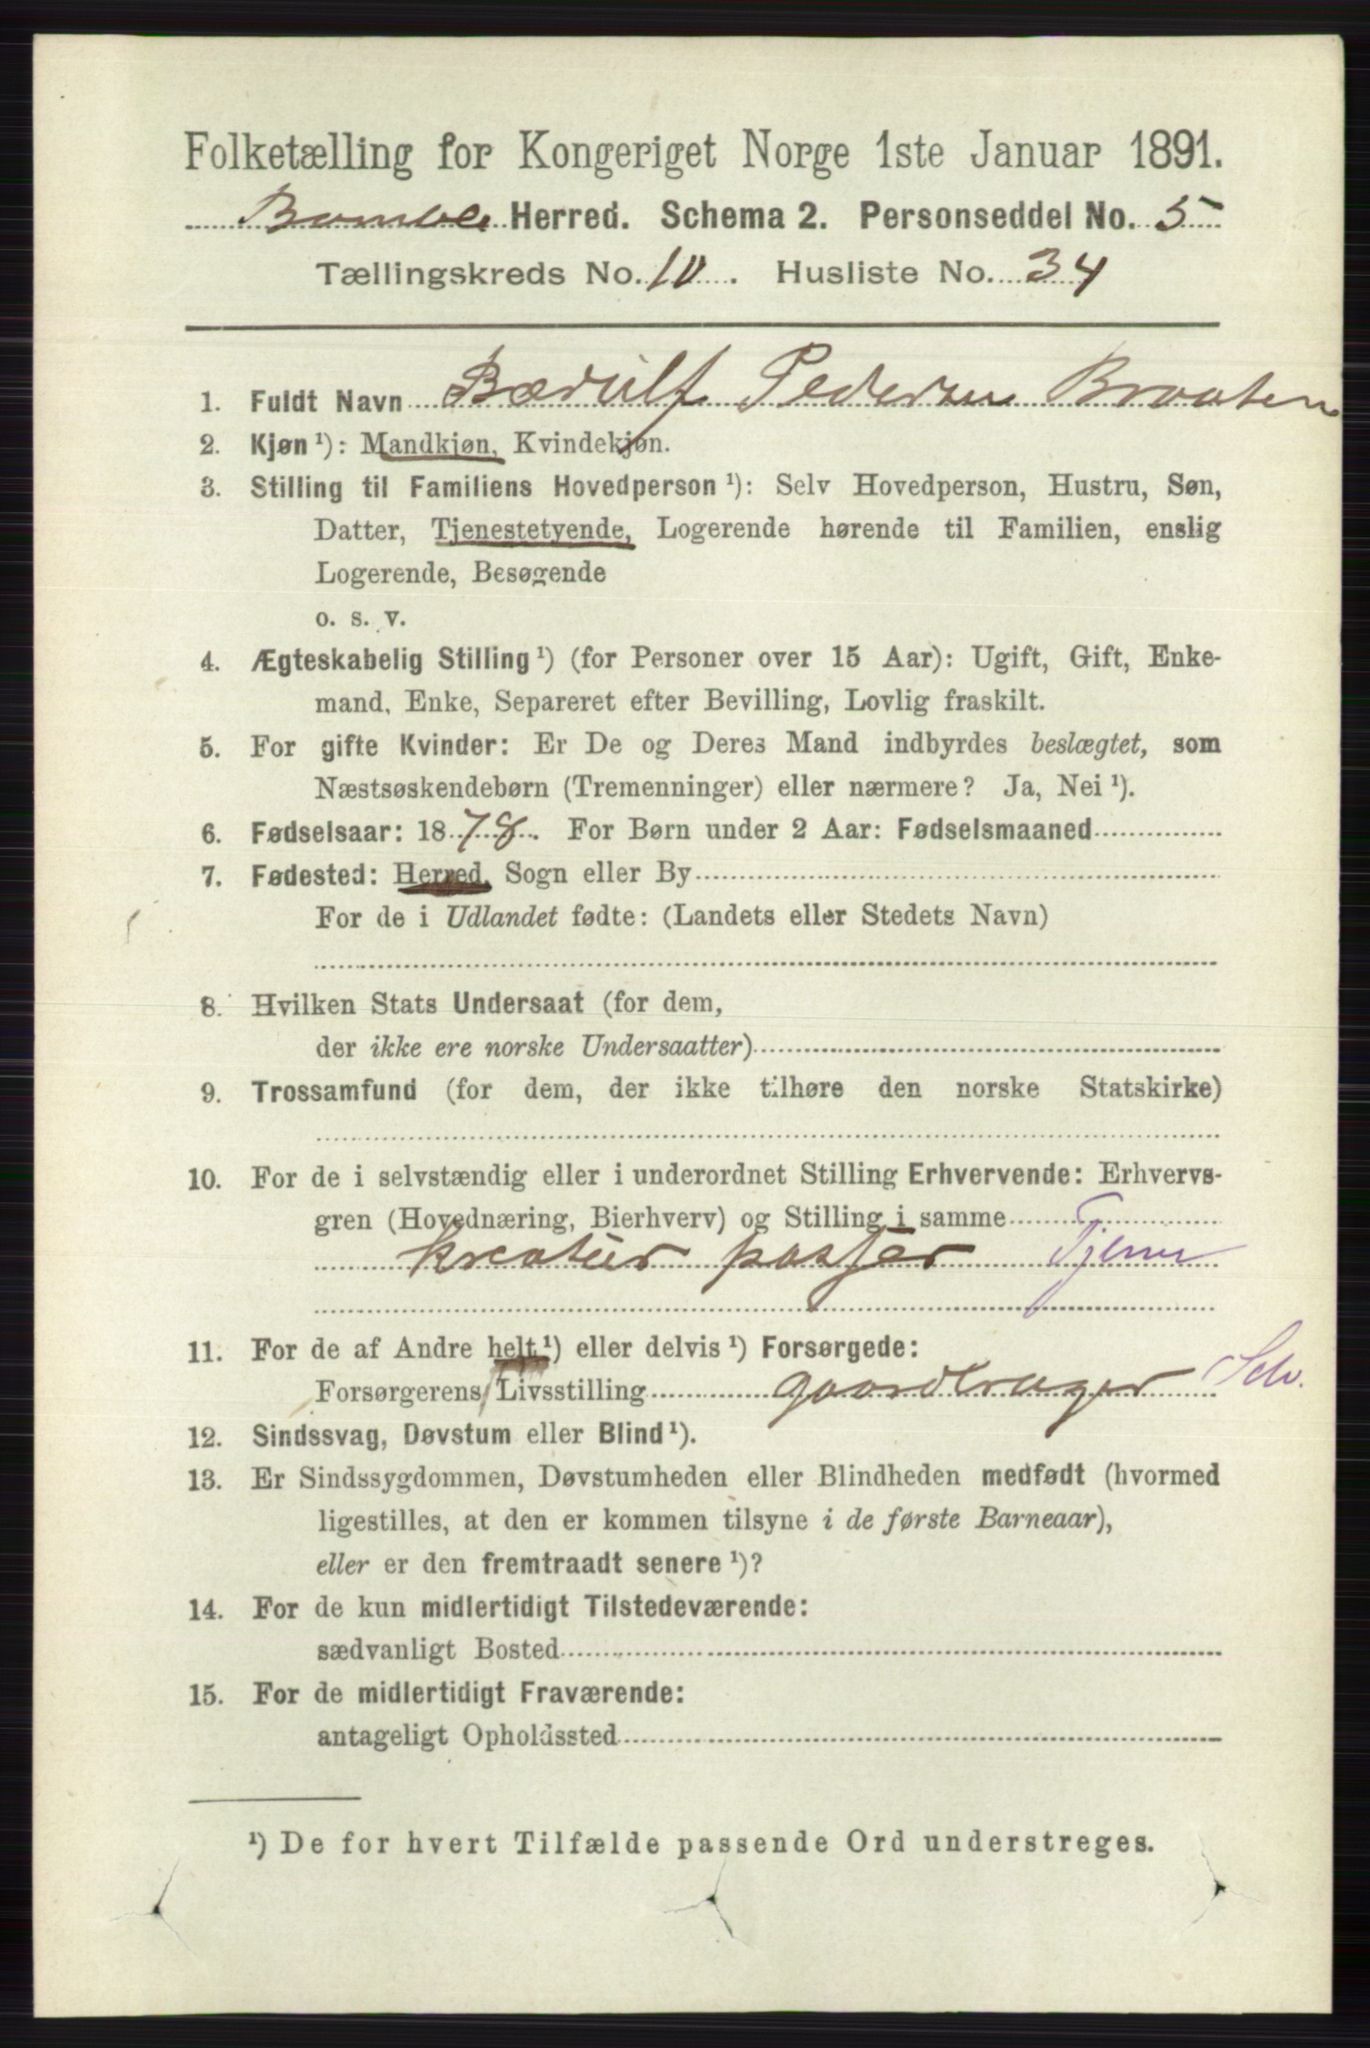 Folketælling for Kongeriget Norge 1ste Januar 1891.
Bamble Herred. Schema 2. Personseddel No. 5
Tællingskreds No. 10. Husliste No. 34
1. Fuldt Navn Bærulf Pedersen Braaten
2. Kjøn ¹): Mandkjøn, Kvindekjøn.
3. Stilling til Familiens Hovedperson ¹): Selv Hovedperson, Hustru, Søn,
Datter, Tjenestetyende, Logerende hørende til Familien, enslig
Logerende, Besøgende
o. s. v.
4. Ægteskabelig Stilling ¹) (for Personer over 15 Aar): Ugift, Gift, Enke-
mand, Enke, Separeret efter Bevilling, Lovlig fraskilt.
5. For gifte Kvinder: Er De og Deres Mand indbyrdes beslægtet, som
Næstsøskendebørn (Tremenninger) eller nærmere? Ja, Nei ¹).
6. Fødselsaar: 1878. For Børn under 2 Aar: Fødselsmaaned
7. Fødested: Herred, Sogn eller By
For de i Udlandet fødte: (Landets eller Stedets Navn)
8. Hvilken Stats Undersaat (for dem,
der ikke ere norske Undersaatter)
9. Trossamfund (for dem, der ikke tilhøre den norske Statskirke)
10. For de i selvstændig eller i underordnet Stilling Erhvervende: Erhvervs-
gren (Hovednæring, Bierhverv) og Stilling i samme
kreatur passer Tjener
11. For de af Andre helt ¹) eller delvis ¹) Forsørgede:
Forsørgerens Livsstilling gaardbruger Selv.
12. Sindssvag, Døvstum eller Blind ¹).
13. Er Sindssygdommen, Døvstumheden eller Blindheden medfødt (hvormed
ligestilles, at den er kommen tilsyne i de første Barneaar),
eller er den fremtraadt senere ¹)?
14. For de kun midlertidigt Tilstedeværende:
sædvanligt Bosted
15. For de midlertidigt Fraværende:
antageligt Opholdssted
¹) De for hvert Tilfælde passende Ord understreges.